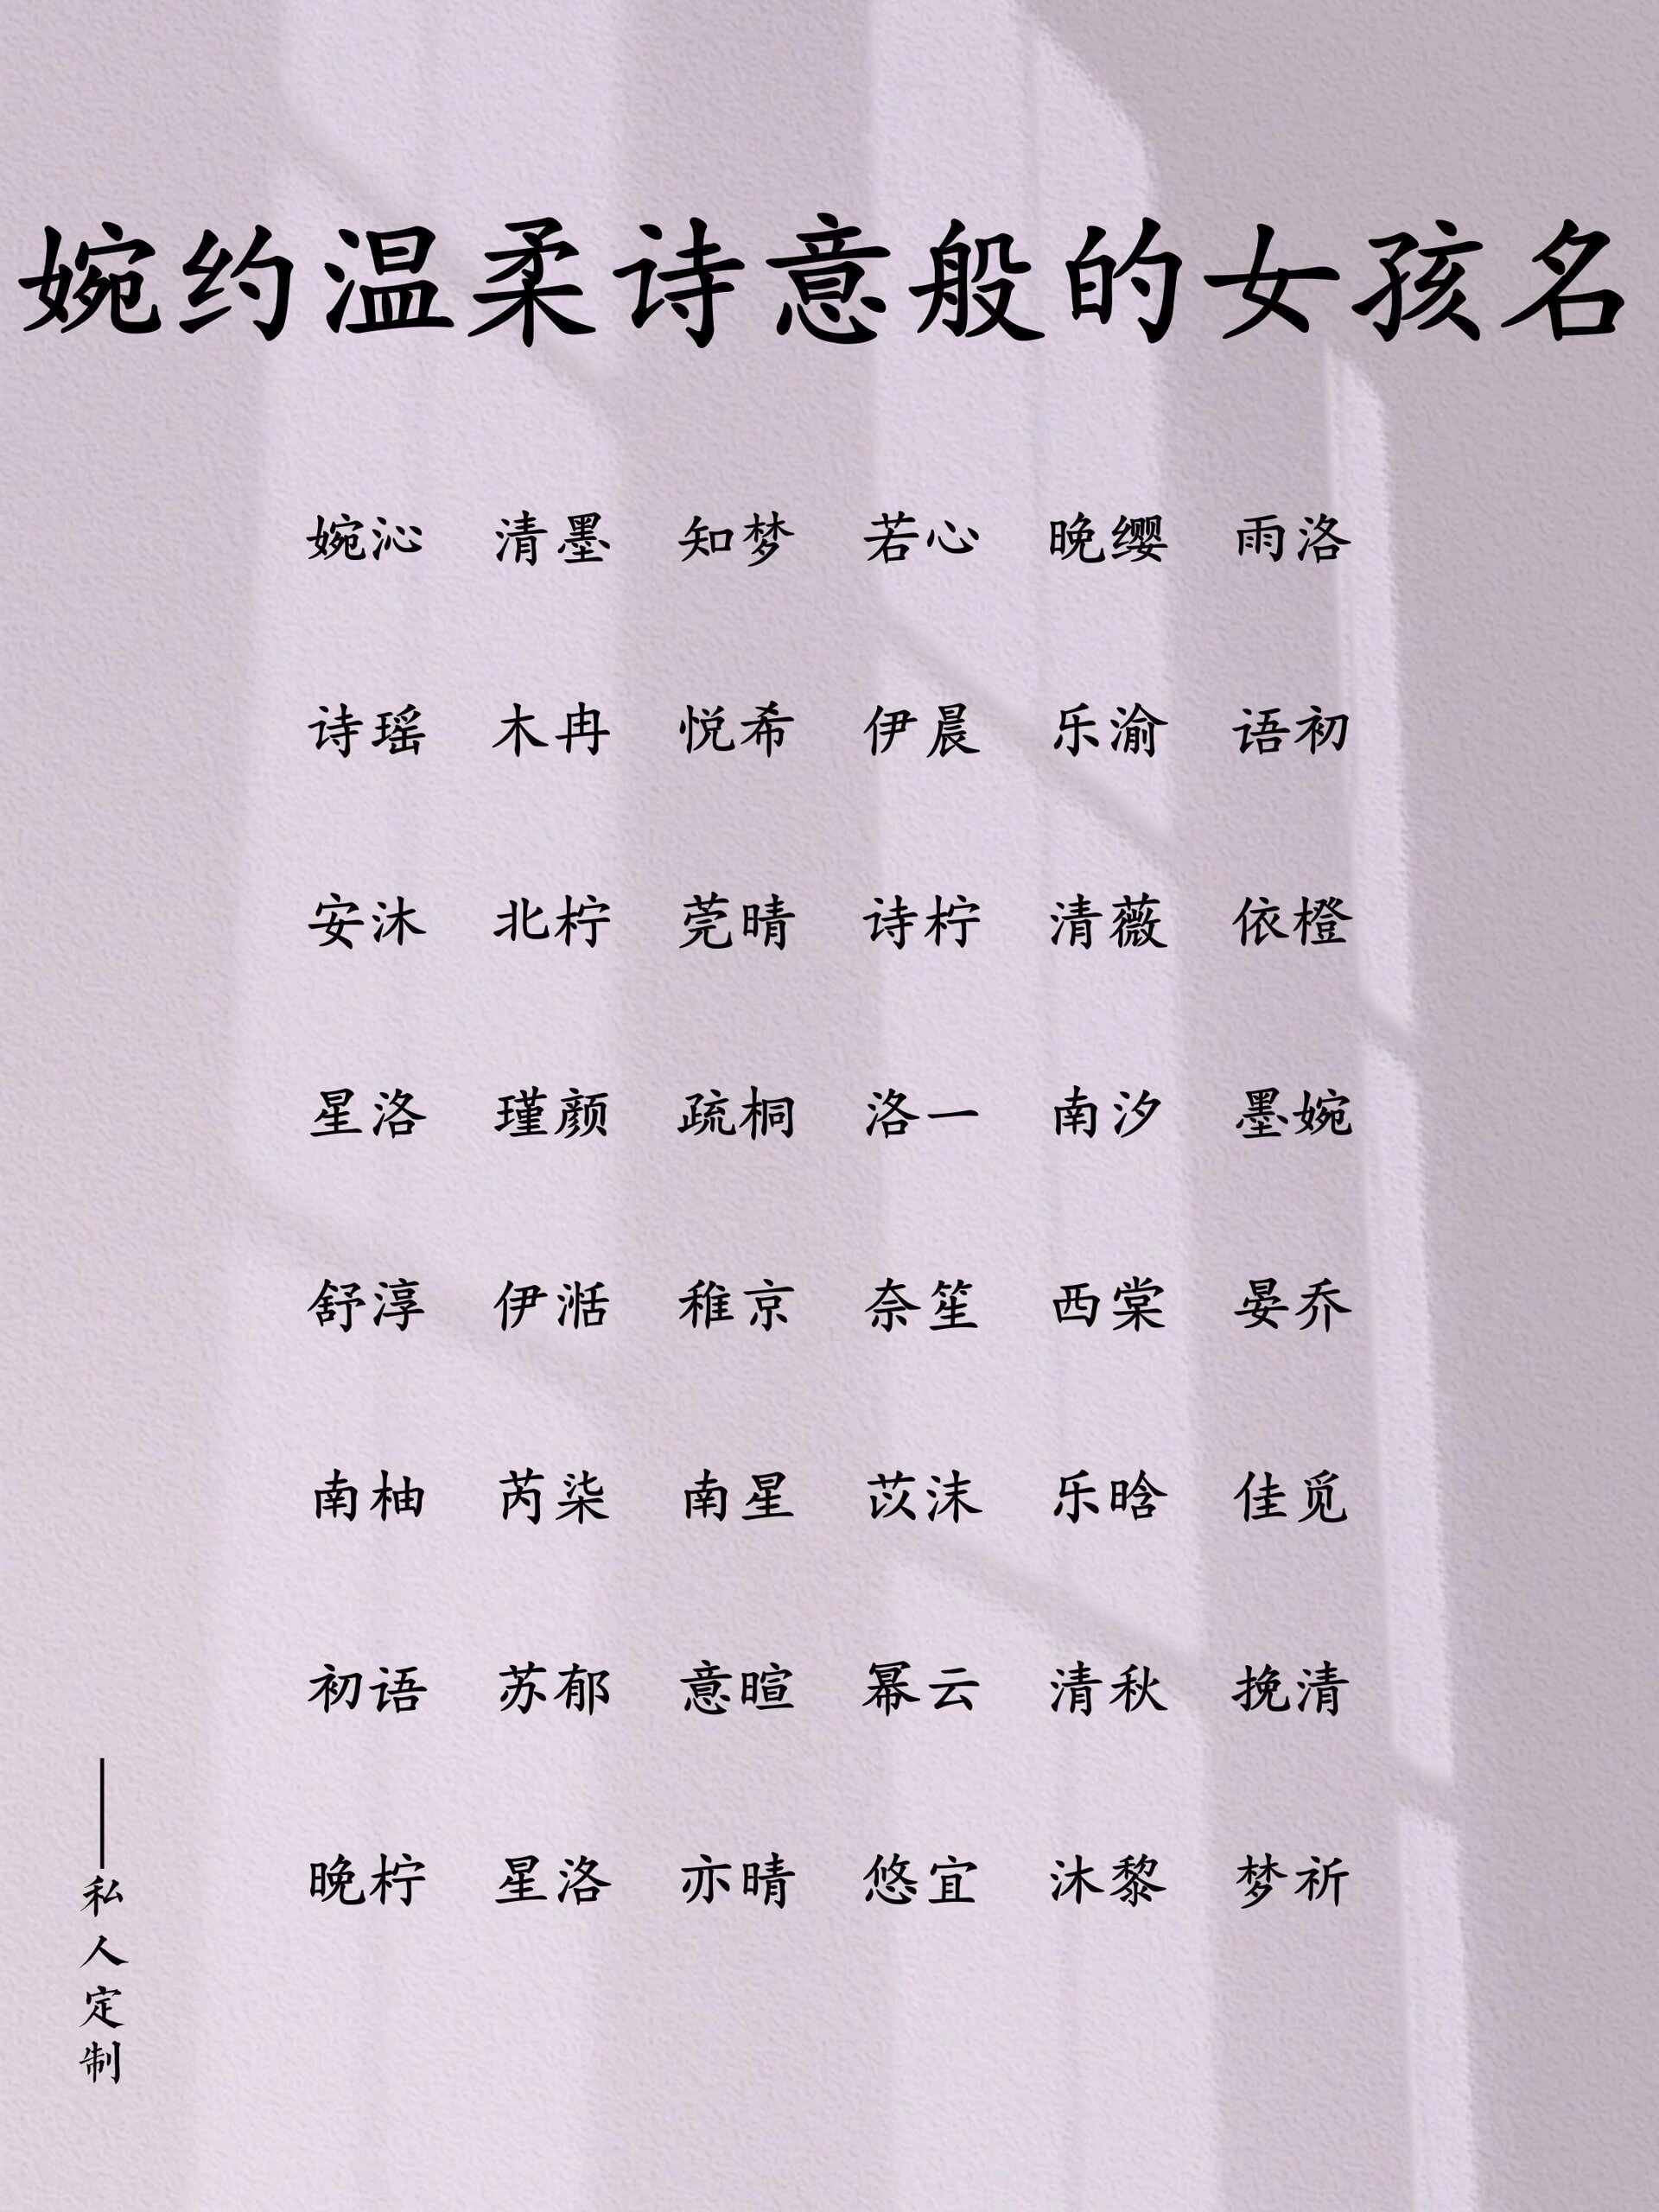 婉约温柔诗意般的女孩名
婉沁 清墨 知梦 若心 晚缨 雨洛
诗瑶 木冉 悦希 伊晨 乐渝 语初
安沐 北柠 莞晴 诗柠 清薇 依橙
星洛 瑾颜 疏桐 洛一 南汐 墨婉
舒淳 伊湉 稚京 奈笙 西棠 晏乔
南柚 芮柒 南星 苡沫 乐晗 佳觅
初语 苏郁 意暄 幂云 清秋 挽清
晚柠 星洛 亦晴 悠宜 沐黎 梦祈
——私人定制